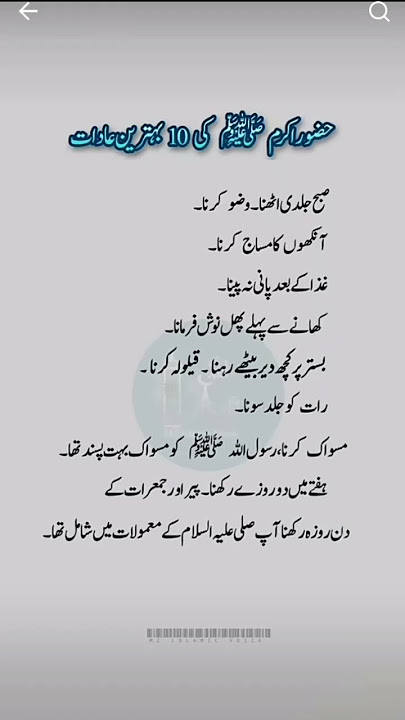 حضور اکرم ﷺ کی 10 بہترین عادات
صبح جلدی اٹھنا۔ وضو کرنا۔
آنکھوں کا مساج کرنا۔
غذا کے بعد پانی نہ پینا۔
کھانے سے پہلے پھل نوش فرمانا۔
بستر پر کچھ دیر بیٹھے رہنا۔ قیلولہ کرنا۔
رات کو جلد سونا۔
مسواک کرنا، رسول اللہ ﷺ کو مسواک بہت پسند تھا۔
ہفتے میں دو روزے رکھنا۔ پیر اور جمعرات کے
دن روزہ رکھنا آپ صلی علیہ السلام کے معمولات میں شامل تھا۔
MZ ISLAMIC VOICE